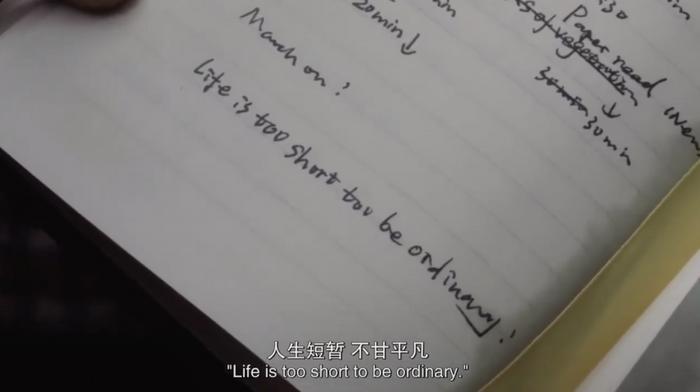 20min↓
March on!
Life is too short too be ordinary!
Paper read
30min 30min
人生短暂 不甘平凡
"Life is too short to be ordinary."